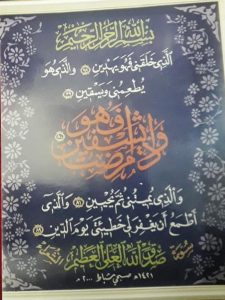 بسم الله الرحمن الرحيم
الذي خلقني فهو يهدين ٧٨ والذي هو
يطعمني ويسقين ٧٩
وإذا مرضت فهو يشفين ٨٠
والذي يميتني ثم يحيين ٨١ والذي
أطمع أن يغفر لي خطيئتي يوم الدين ٨٢
صدق الله العلي العظيم